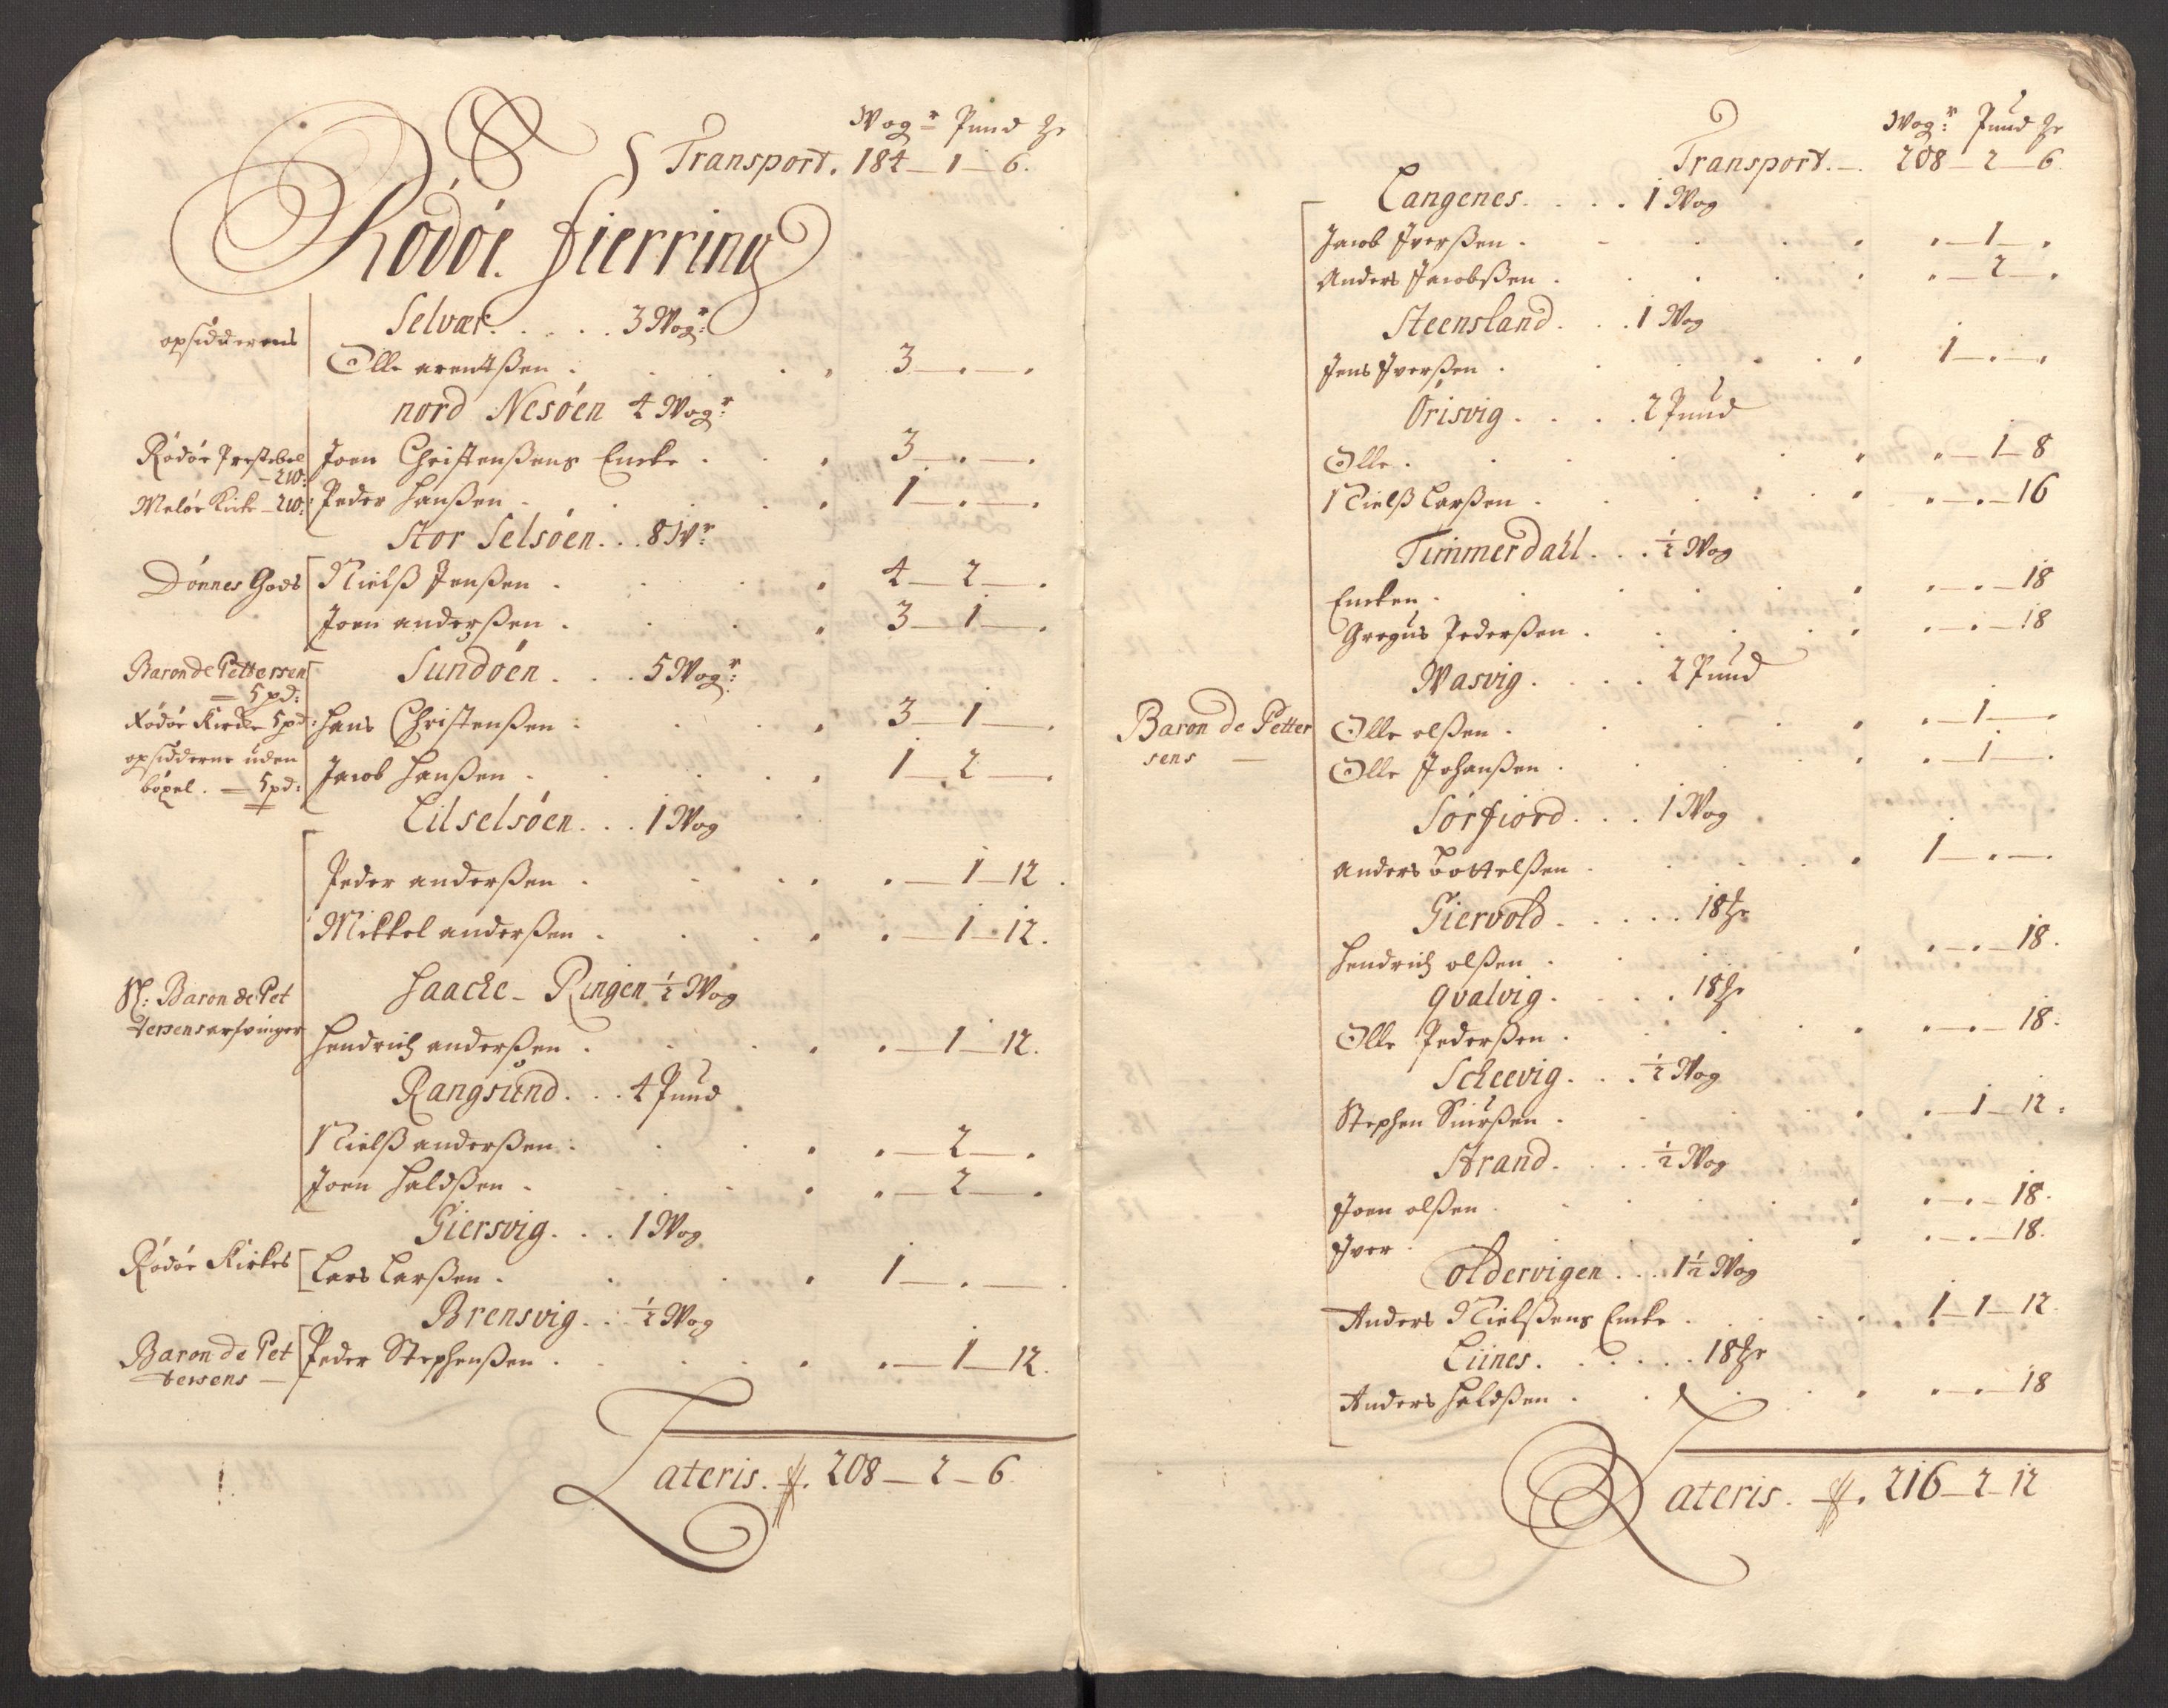 Wogr: Pund
Transport. 184 – 1 – 6.
Rödöe fierring
Selvær. . . . . 3 Wogr:
opsidderens
Olle arentsßen . . . 3 – . – .
nord Nesöen 4 Wogr:
Rödöe Prestebol – 2W:
Joen Christenßens Encke . . . 3 – . – .
Melöe Kirke – 2W:
Peder Hanßen . . . 1 – . – .
Stor Selsöen. . . 8 Wr:
Dönnes Gods
Nielß Jenßen . . . 4 – 2 – .
Joen anderßen . . . 3 – 1 – .
Baron de Pettersen – 5 pd:
Sundöen . . . 5 Wogr:
Rödöe Kircke 5 pd:
Hans Christenßen . . . 3 – 1 – .
opsidderne uden böxel. – 5 pd:
Jacob Hanßen . . . 1 – 2 – .
Lilselsöen. . . 1 Wog
Peder anderßen . . . – 1 – 12.
Mikkel anderßen . . . – 1 – 12.
Haacke – Ringen ½ Wog
Sl: Baron de Pet
tersens arfvinger
Hendrich anderßen . . . – 1 – 12.
Rangsund. . . 4 Pund
Nielß anderßen . . . – 2 – .
Joen Haldßen . . . – 2 – .
Giersvig. . . 1 Wog
Rödöe Kirkes
Lars Larßen . . . 1 – . – .
Brensvig. . . ½ Wog
Baron de Pet
tersens –
Peder Stephenßen . . . – 1 – 12.
Lateris. 208 – 2 – 6
Wogr: Pund
Transport. – 208 – 2 – 6.
Langenes. . . . 1 Wog
Jacob Iverßen . . . – 1 – .
Anders Jacobßen . . . – 2 – .
Steensland. . . 1 Wog
Jens Iverßen . . . 1 – . – .
Örisvig. . . . 2 Pund
Olle . . . – 1 – 8
Nielß Larßen . . . – . – 16
Timmerdall. . . ½ Wog
Encken . . . – . – 18
Gregus Pederßen . . . – . – 18
Wasvig. . . . 2 Pund
Baron de Petter
sens –
Olle olßen . . . – 1 – .
Olle Johanßen . . . – 1 – .
Sörfiord. . . 1 Wog
Anders Bottelßen . . . 1 – . – .
Giervold. . . . . 18
Hendrich olßen . . . – . – 18.
qvalvig. . . . 18
Olle Pederßen . . . – . – 18.
Scheevig. . . ½ Wog
Stephen Siurßen . . . – 1 – 12.
Strand. . . . ½ Wog
Joen olßen . . . – . – 18.
Iver . . . – . – 18.
Oldervigen . . . 1½ Wog
Anders Nielßens Encke . . . 1 – 1 – 12.
Liines. . . . . . 18
Anders Haldßen . . . – . – 18
Lateris. 216 – 2 – 12